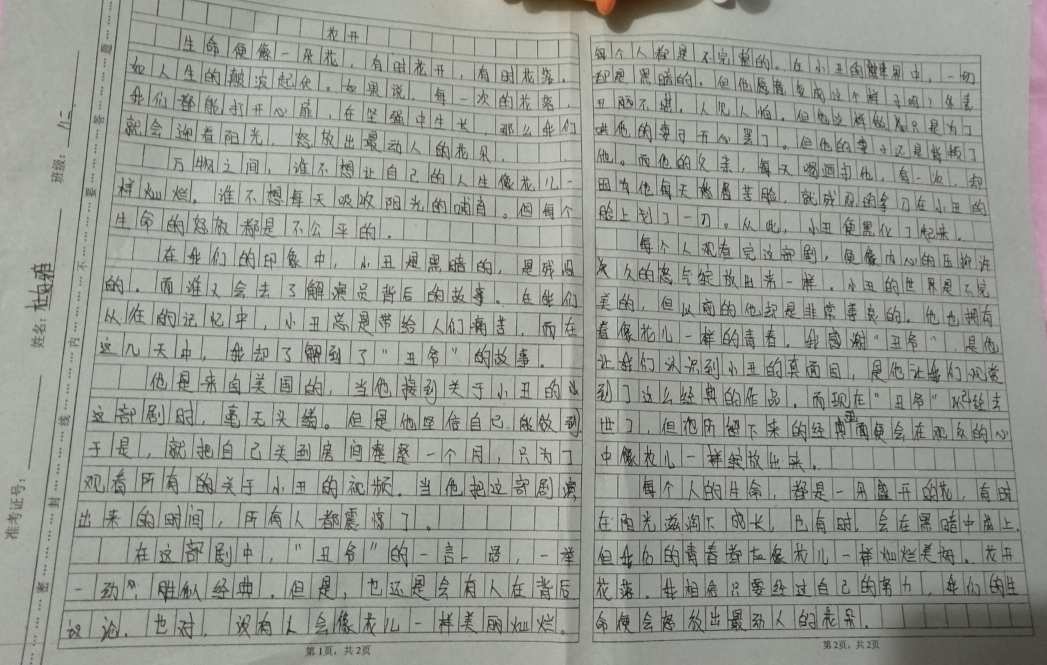 花开
生命便像一朵花，有时花开，有时花落，
如人生的颠波起伏。如果说，每一次的花落，
我们都能打开心扉，在坚强中生长，那么我们
就会迎着阳光，怒放出最动人的花朵。
万物之间，谁不想让自己的人生像花儿一
样灿烂。谁不想每天吸收阳光的哺育。但每个
生命的怒放都是不公平的。
在我们的印象中，小丑是黑暗的，是残忍
的。而谁又会去了解演员背后的故事。在我们
从在的记忆中，小丑总是带给人们痛苦，而在
这几天中，我却了解到了“丑爷”的故事。
他是来自美国的，当他接到关于小丑的
这部剧时，毫无头绪。但是他坚信自己能做到
于是，就把自己关到房间整整一个月，只为了
观看所有的关于小丑的视频。当他把这部剧演
出来的时间，所有人都震惊了。
在这部剧中，“丑爷”的一言一语，一举
一动，胜似经典。但是，也还是会有人在背后
议论。也对，没有人会像花儿一样美丽灿烂。
第1页，共2页
每个人都是不完整的。在小丑的世界中，一切
却是黑暗的。但他愿意变成这个样子吗？
丑陋不堪，人见人怕。但他这样做只是为了
哄他的妻子开心罢了。但他的妻子还是
他。而他的父亲，每天喝酒打他，有一次，却
因为他每天愁眉苦脸，就残忍的拿刀在小丑的
脸上划了一刀。从此，小丑便黑化了起来。
每个人观看完这部剧，便像内心的压抑许
久的怒气绽放出来一样。小丑的世界是不完
美的，但以前的他却是非常善良的。他也拥有
着像花儿一样的青春。我感谢“丑爷”，是他
让我们认识到小丑的真面目，是他让我们观赏
到了这么经典的作品。而现在“丑爷”以经去
世了，但他所留下来的经典便会在观众的心
中像花儿一样绽放出来。
每个人的生命，都是一朵盛开的花，有时
在阳光滋润下成长，也有时，会在黑暗中
但我们的青春都如像花儿一样灿烂美丽。花开
花落。我相信只要经过自己的努力，我们的生
命便会怒放出最动人的花朵。
第2页，共2页
班级：
姓名：
准考证号：
密 封 线 内 不 要 答 题